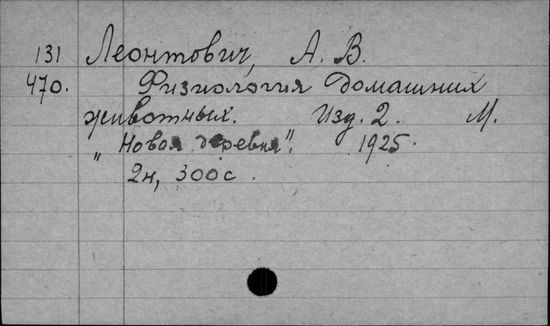 131 Леонтович, А. В.
470. Физиология домашних
животных. Изд. 2. М.
„Новая деревня". 1925.
2н, 300с.